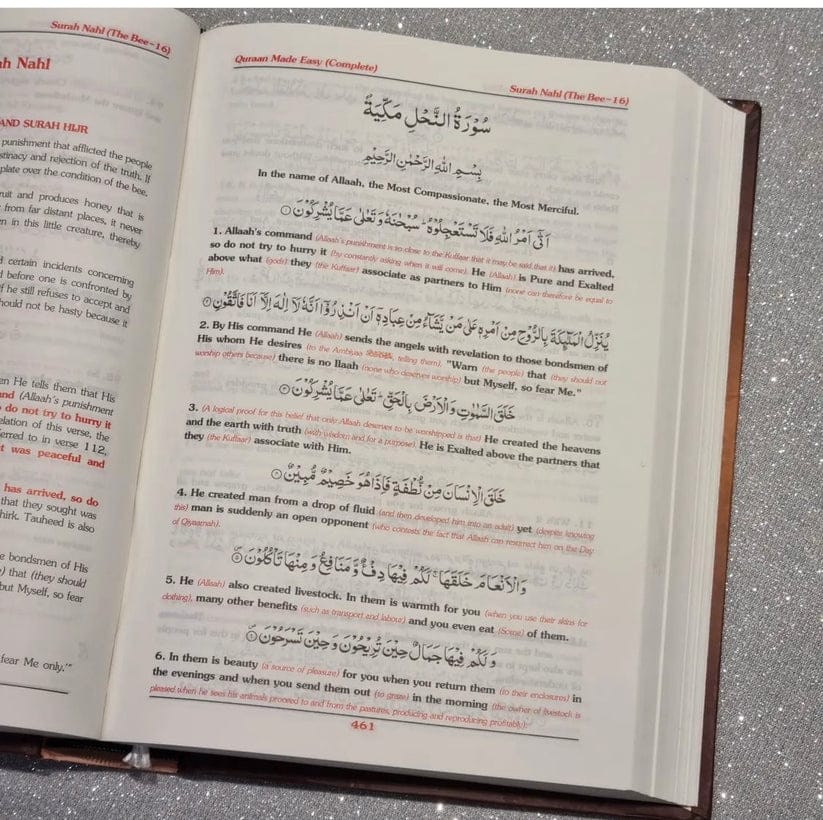 Surah Nahl (The Bee-16)
ah Nahl
AND SURAH HIJR
punishment that afflicted the people
stinacy and rejection of the truth. If
plate over the condition of the bee.
ruit and produces honey that is
from far distant places, it never
en in this little creature, thereby
d certain incidents concerning
d before one is confronted by
f he still refuses to accept and
hould not be hasty because it
en He tells them that His
and (Allaah's punishment
do not try to hurry it
elation of this verse, the
erred to in verse 112,
t was peaceful and
has arrived, so do
that they sought was
hirk. Tauheed is also
e bondsmen of His
) that (they should
but Myself, so fear
fear Me only.'"
Quraan Made Easy (Complete)
Surah Nahl (The Bee-16)
سُوْرَةُ النَّحْلِ مَكِّيَّةٌ
بِسْمِ اللهِ الرَّحْمٰنِ الرَّحِيْمِ
In the name of Allaah, the Most Compassionate, the Most Merciful.
اَتٰۤى اَمْرُ اللهِ فَلَا تَسْتَعْجِلُوْهُ ؕ سُبْحٰنَهٗ وَتَعٰلٰى عَمَّا يُشْرِكُوْنَ ①
1. Allaah's command (Allaah's punishment is so close to the Kuffaar that it may be said that it) has arrived,
so do not try to hurry it (by constantly asking when it will come). He (Allaah) is Pure and Exalted
above what (gods) they (the Kuffaar) associate as partners to Him (none can therefore be equal to
Him).
يُنَزِّلُ الْمَلٰٓئِكَةَ بِالرُّوْحِ مِنْ اَمْرِهٖ عَلٰى مَنْ يَّشَآءُ مِنْ عِبَادِهٖۤ اَنْ اَنْذِرُوْۤا اَنَّهٗ لَاۤ اِلٰهَ اِلَّاۤ اَنَا فَاتَّقُوْنِ ②
2. By His command He (Allaah) sends the angels with revelation to those bondsmen of
His whom He desires (to the Ambiyaa, telling them). "Warn (the people) that (they should not
worship others because) there is no Ilaah (none who deserves worship) but Myself, so fear Me."
خَلَقَ السَّمٰوٰتِ وَالْاَرْضَ بِالْحَقِّ ؕ تَعٰلٰى عَمَّا يُشْرِكُوْنَ ③
3. (A logical proof for this belief that only Allaah deserves to be worshipped is that) He created the heavens
and the earth with truth (with wisdom and for a purpose). He is Exalted above the partners that
they (the Kuffaar) associate with Him.
خَلَقَ الْاِنْسَانَ مِنْ نُّطْفَةٍ فَاِذَا هُوَ خَصِيْمٌ مُّبِيْنٌ ④
4. He created man from a drop of fluid (and then developed him into an adult) yet (despite knowing
this) man is suddenly an open opponent (who contests the fact that Allaah can resurrect him on the Day
of Qiyaamah).
وَالْاَنْعَامَ خَلَقَهَا ۚ لَكُمْ فِيْهَا دِفْءٌ وَّمَنَافِعُ وَمِنْهَا تَاْكُلُوْنَ ⑤
5. He (Allaah) also created livestock. In them is warmth for you (when you use their skins for
clothing), many other benefits (such as transport and labour) and you even eat (Some) of them.
وَلَكُمْ فِيْهَا جَمَالٌ حِيْنَ تُرِيْحُوْنَ وَحِيْنَ تَسْرَحُوْنَ ⑥
6. In them is beauty (a source of pleasure) for you when you return them (to their enclosures) in
the evenings and when you send them out (to graze) in the morning (the owner of livestock is
pleased when he sees his animals proceed to and from the pastures, producing and reproducing profitably).
461